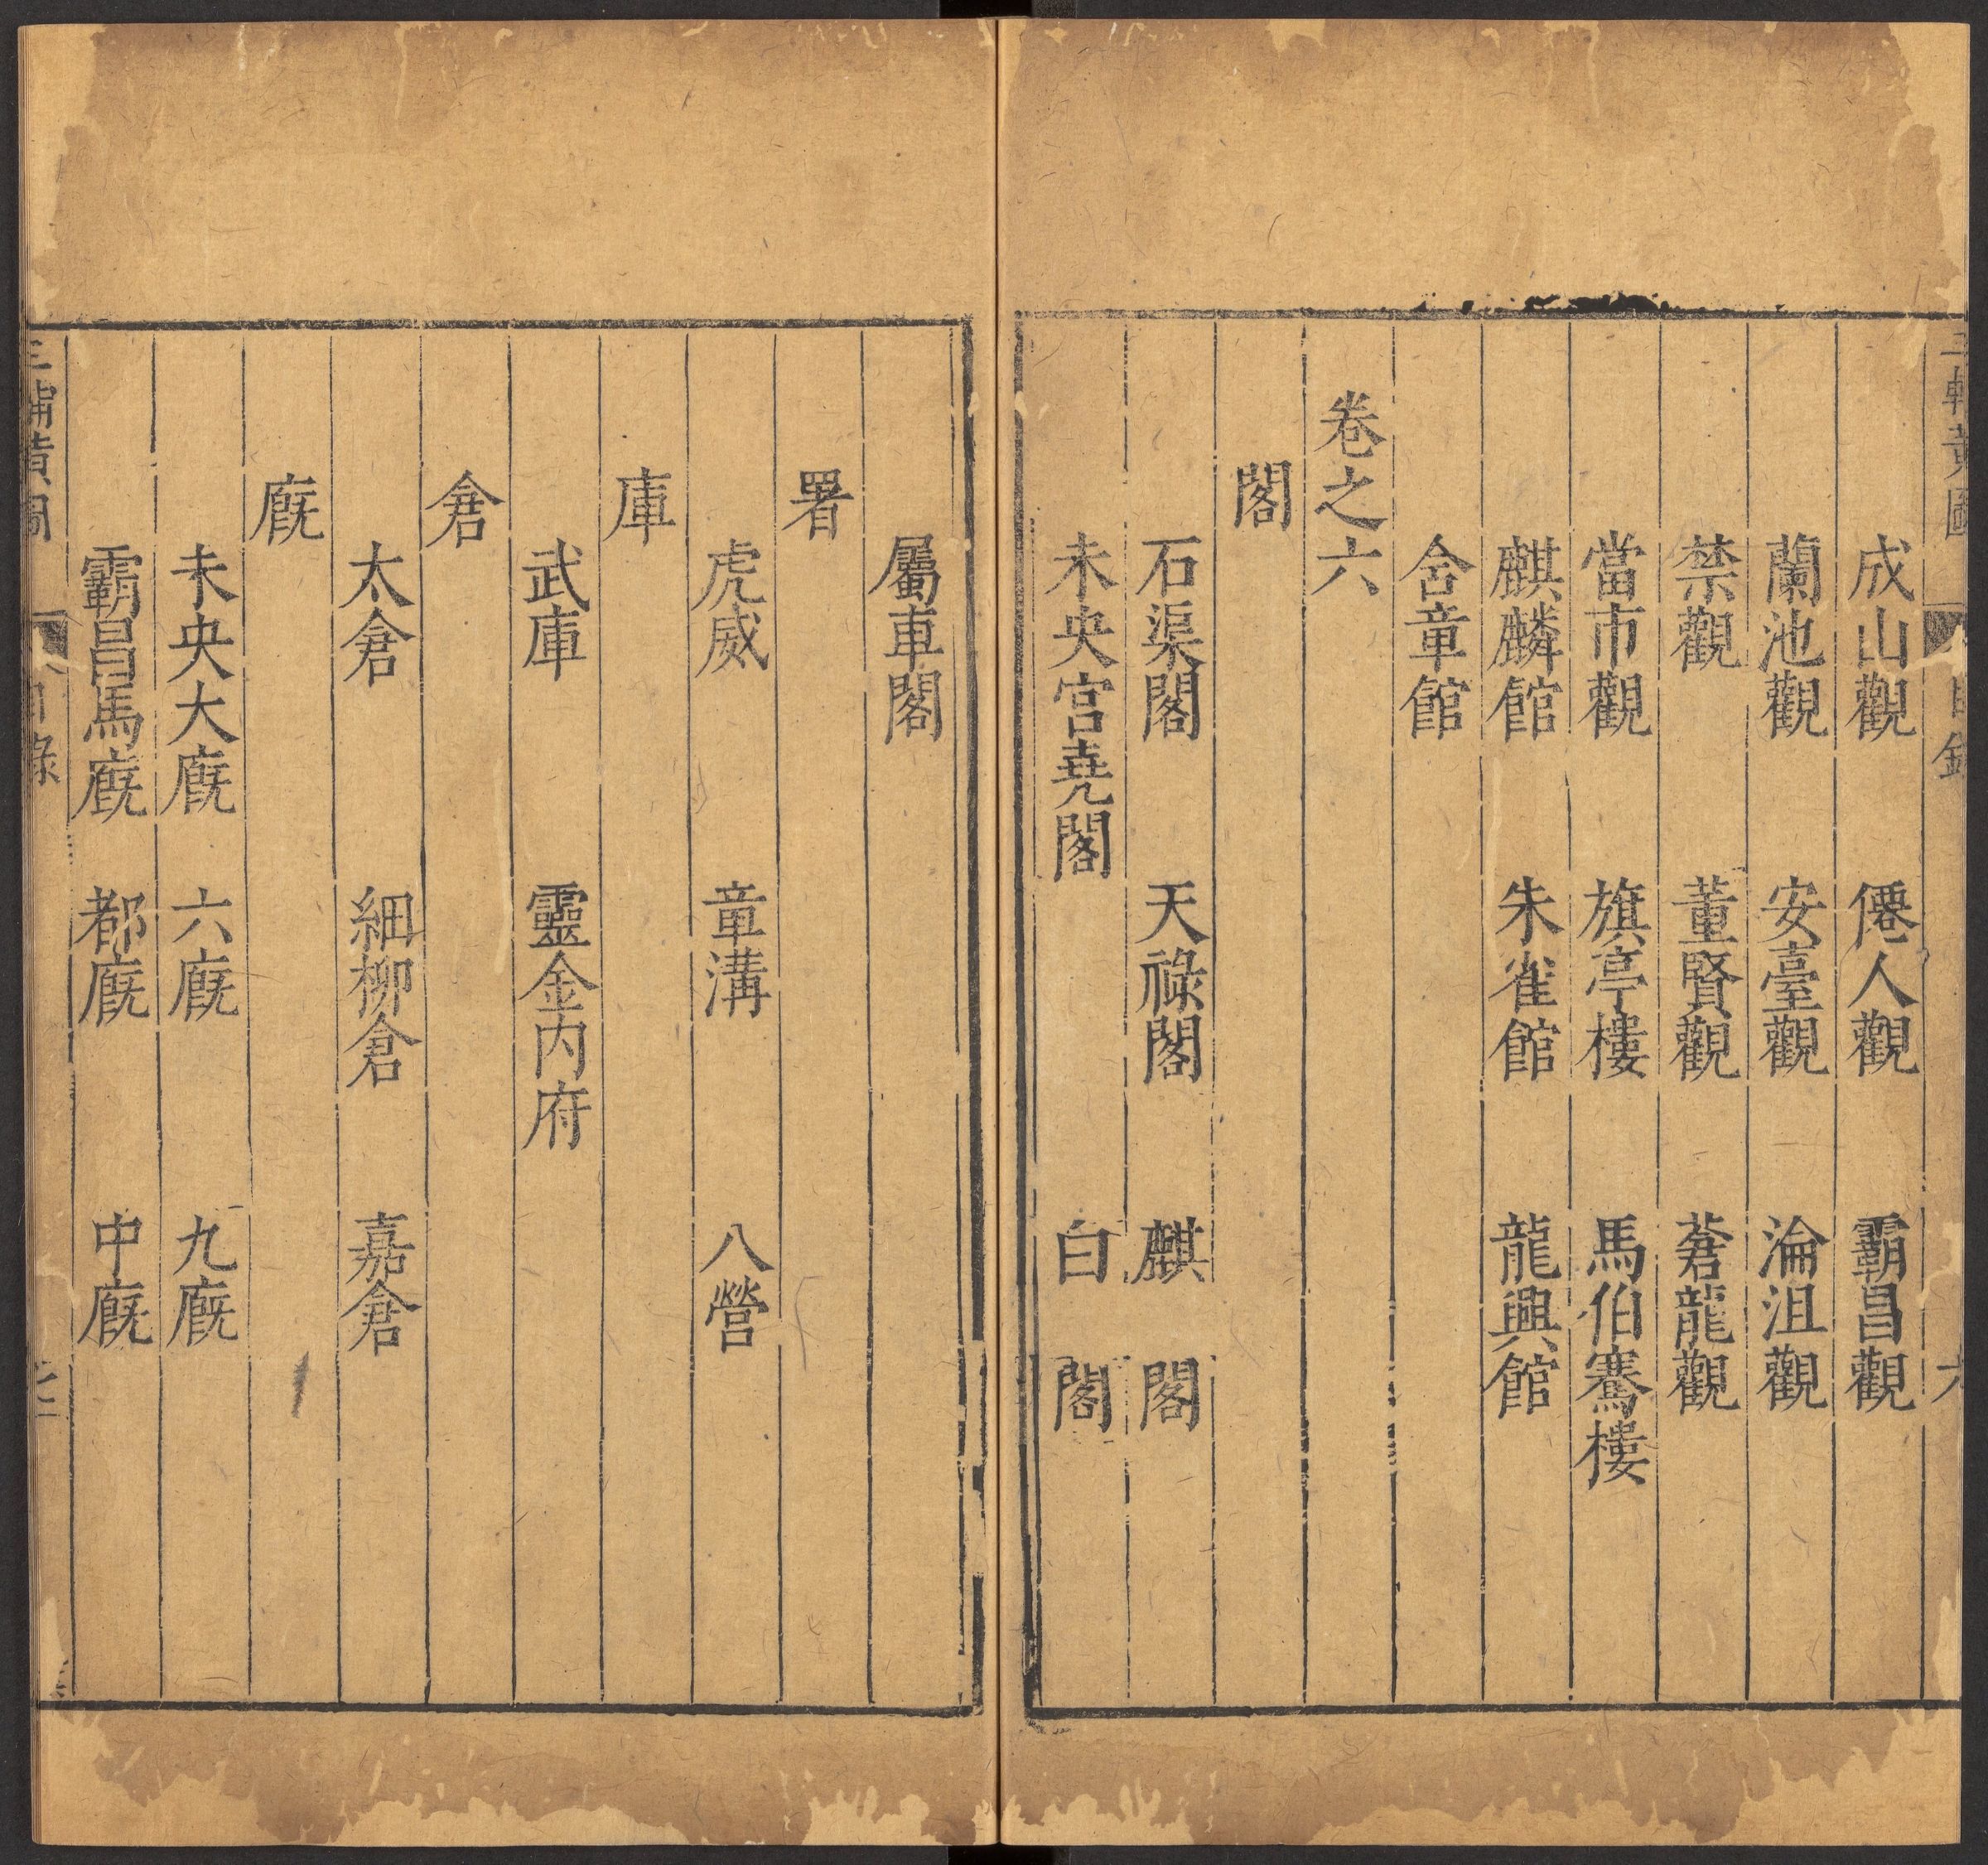 三輔黃圖 目錄 六
成山觀 僊人觀 霸昌觀
蘭池觀 安臺觀 淪沮觀
禁觀 董賢觀 蒼龍觀
當市觀 旗亭樓 馬伯騫樓
麒麟館 朱雀館 龍興館
含章館
卷之六
閣
石渠閣 天祿閣 麒 閣
未央宮堯閣 白 閣
屬車閣
署
虎威 章溝 八營
庫
武庫 靈金內府
倉
太倉 細柳倉 嘉倉
廐
未央大廐 六廐 九廐
霸昌馬廐 都廐 中廐
三輔黃圖 目錄